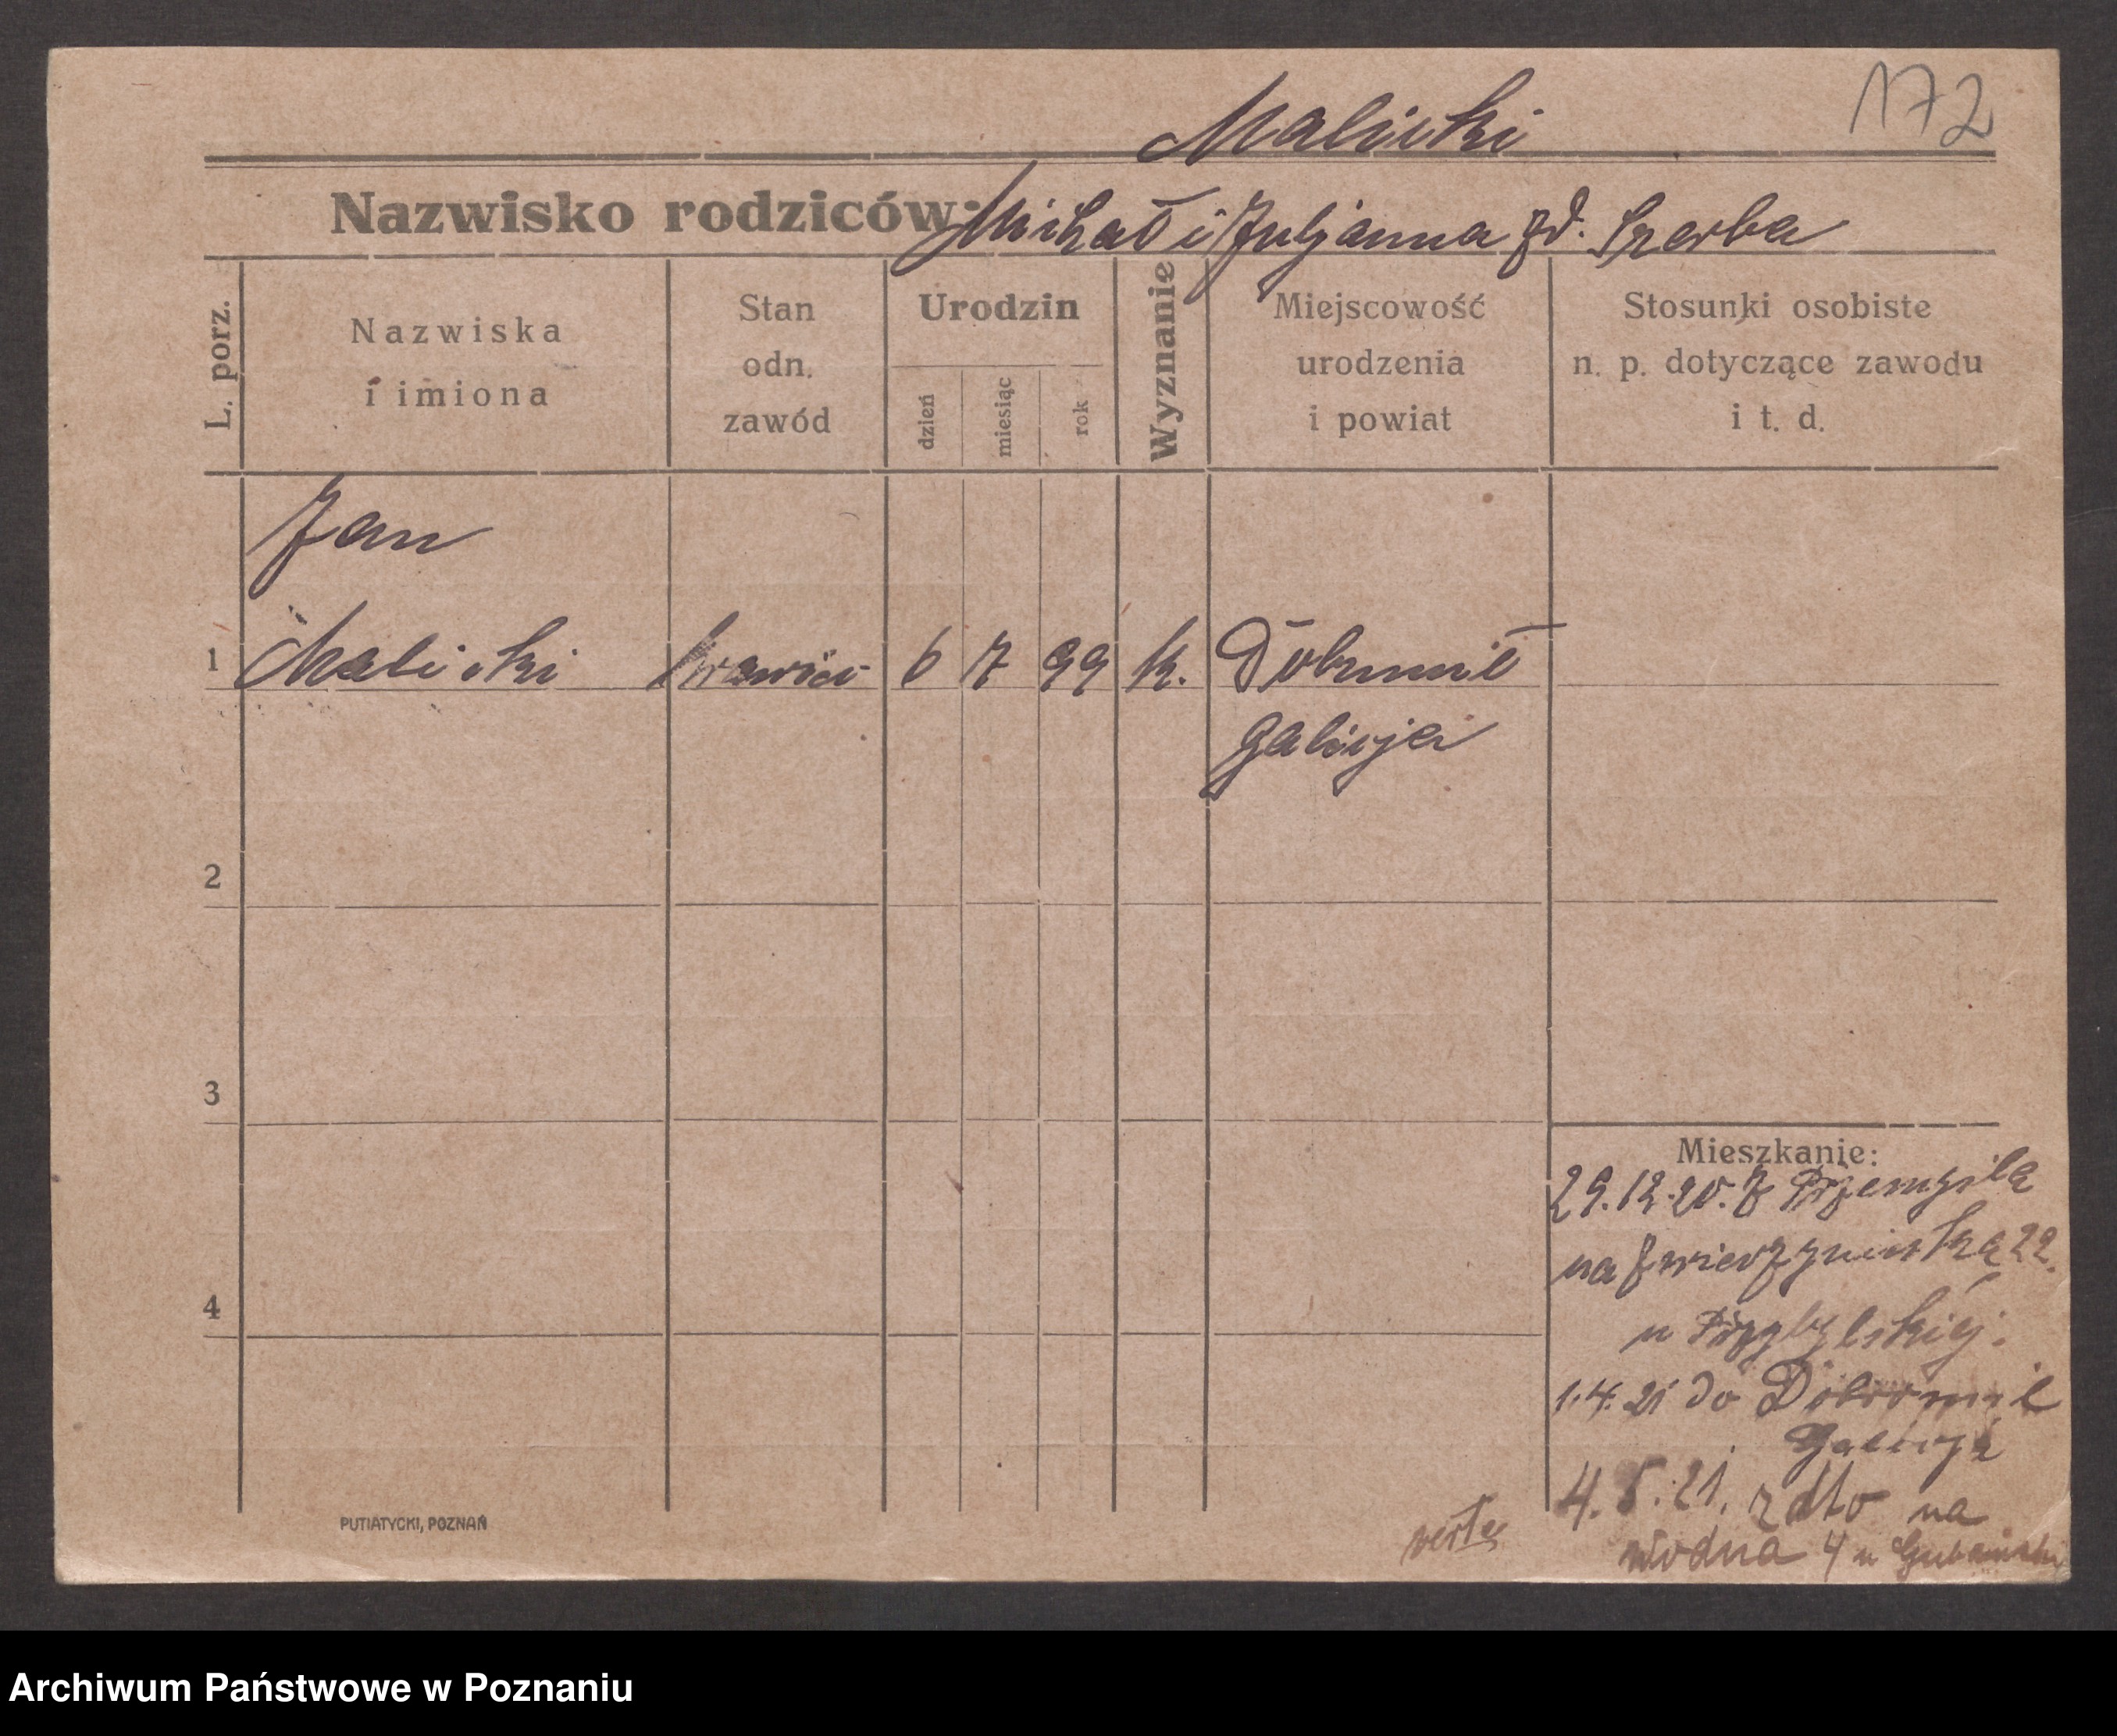 172
Malicki
Nazwisko rodziców: Michał i Juljanna zd. Szerba
L. porz.
Nazwiska
i imiona
Stan
odn.
zawód
Urodzin
dzień
miesiąc
rok
Wyznanie
Miejscowość
urodzenia
i powiat
Stosunki osobiste
n. p. dotyczące zawodu
i t. d.
Jan
1 Malicki krawiec 6 7 99 k. Dobrmił
Galicja
2
3
4
Mieszkanie:
29.12.20. z Przemyśla
na Zwierzyniecką 22.
u Przybylskiej.
1.4.21 do Dobromil
Galicja
4.5.21. z dto na
Wodna 4 u
verte
PUTIATYCKI, POZNAŃ
Archiwum Państwowe w Poznaniu